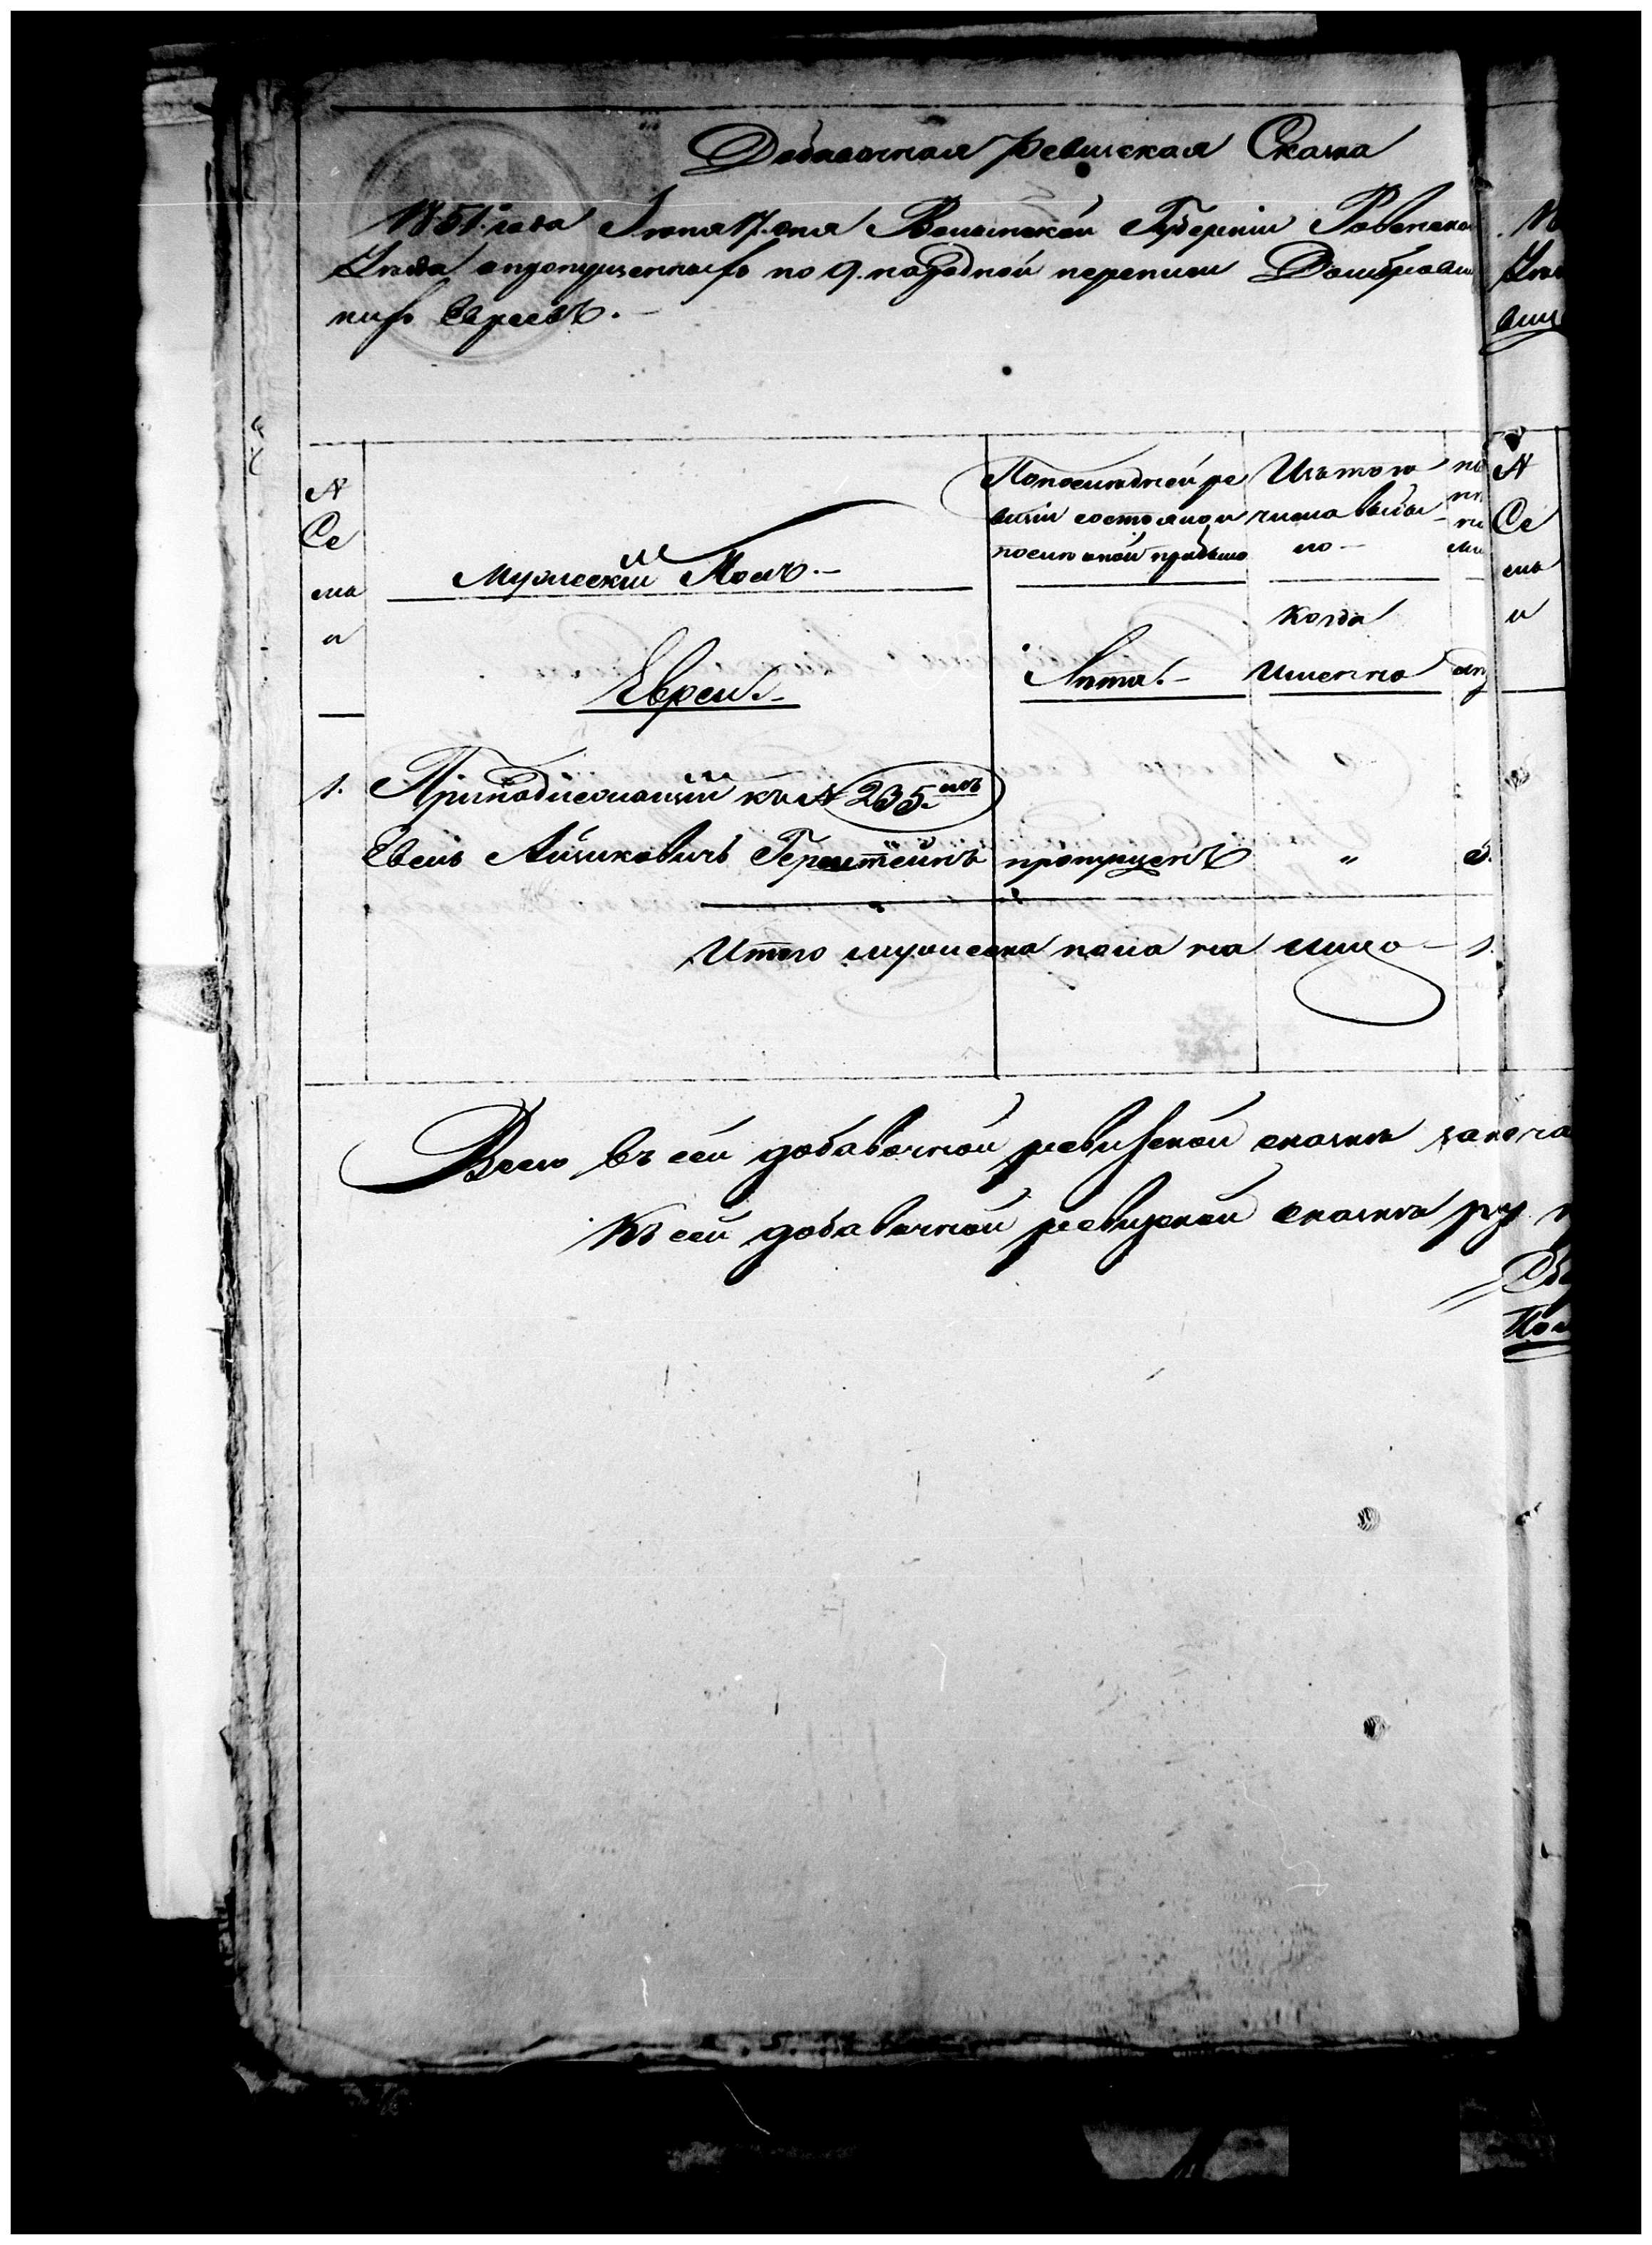 Добавочная Ревиская Скаска
1851. года Іюня 17. дня Волынской Губерніи Ровенска
Уезда о пропущенныхъ по 9. народной переписи Домброви
кихъ Евреевъ.
№ Се мьи
Мужескій Полъ.
По последней ре визіи состояло и после оной прибыло
Изъ того числа выбы ло
Лѣта.
Когда Именно
Евреи.
1. Принадлежащій къ № 235.
Евель Айзиковичъ Герштейнъ пропущенъ "
Итого мужеска пола на лицо 1.
Всего въ сей добавочной ревизской скаскѣ
Къ сей добавочной ревизской скаскѣ ру
№
Се
мьи